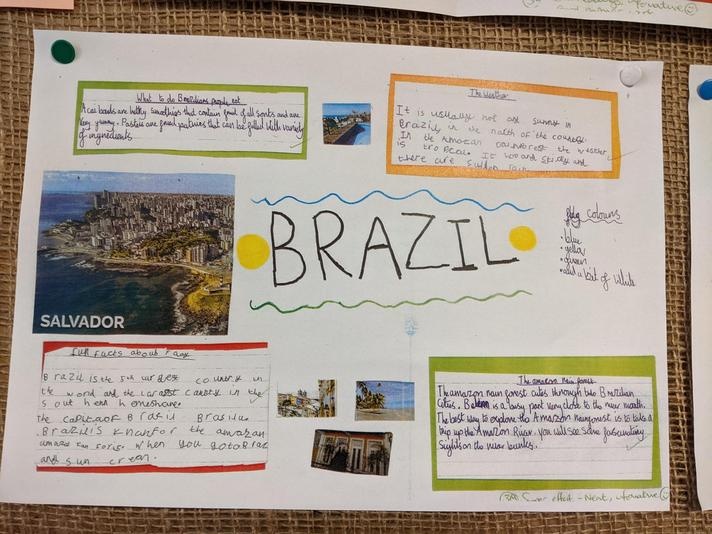 What to do Brazilians people eat
Acai bowls are helthy smoothies that contain fruit of all sorts and are
Very yummy. Pasteis are fried pastries that can be filled with variety
of ingredients.
The Weather
It is usually hot and sunny in
Brazil, in the north of the country.
In the amazan rainforest the weather
is tropical. It humid sticky and
there are sudden rain
SALVADOR
BRAZIL
flag colours
• blue
• yellow
• green
• and a bit of white
fun facts about
Brazil is the 5th larGest country in
the word and the largest country in the
South
The capital of Brasil Brasilia
Brazil is for the amazan
When you go to Braz
and sun cream.
The amazon rain forest
The amazon rain forest cuts through two Brazilian
cities. Belem is a busy port very close to the river mouth.
The best way to explore the Amazon Rainforest is to take a
trip up the Amazon River. you will see some fascinating
sights on the river banks.
Super effort - Neat, informative